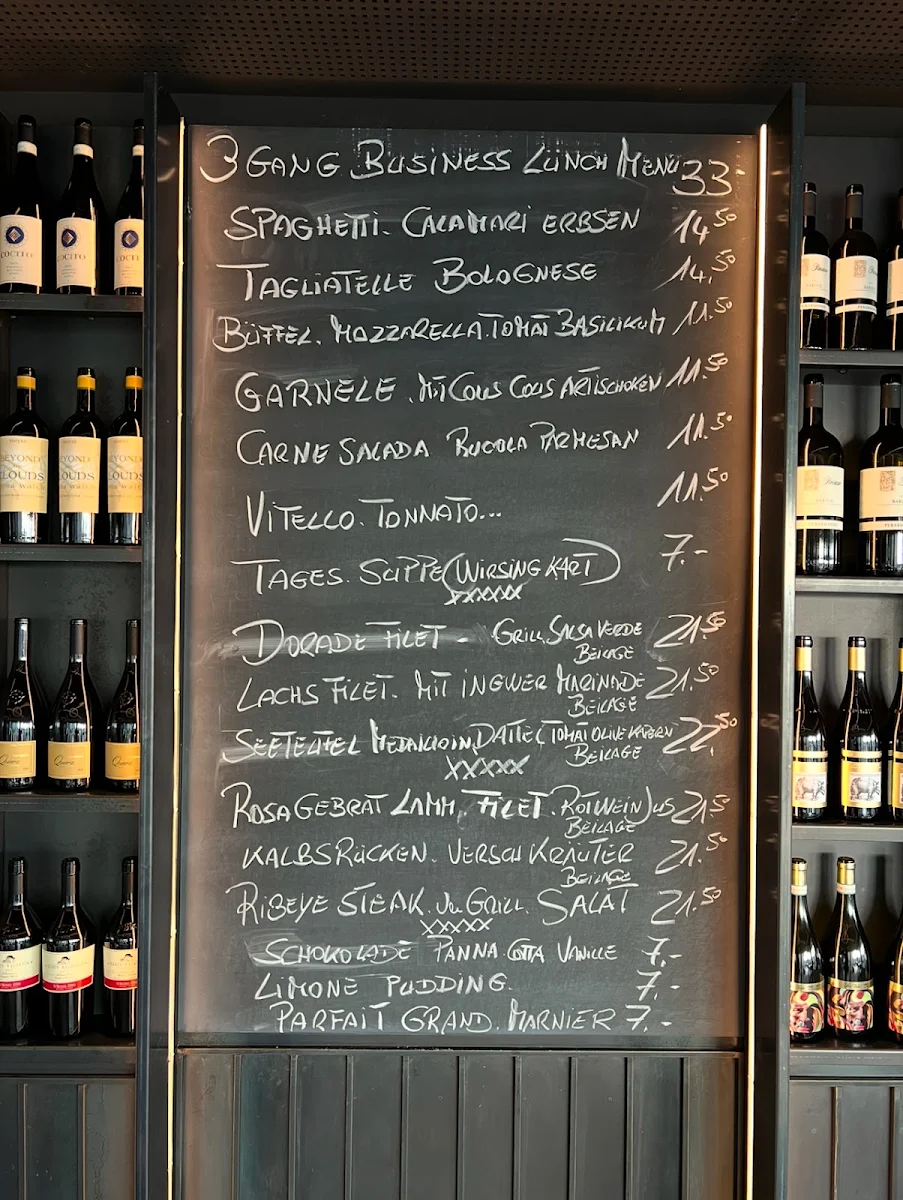 3 GANG BUSINESS LUNCH MENU 33.-
SPAGHETTI. CALAMARI ERBSEN 14,50
TAGLIATELLE BOLOGNESE 14,50
BÜFFEL. MOZZARELLA.TOMAT BASILIKUM 11.50
GARNELE .MIT COUS COUS ARTISCHOKEN 11.50
CARNE SALADA RUCOLA PARMESAN 11.50
VITELLO.TONNATO... 11.50
TAGES. SUPPE (WIRSING KART) 7.-
XXXXX
DORADE FILET - GRILL SALSA VERDE 21.50
BEILAGE
LACHS FILET. MIT INGWER MARINADE 21.50
BEILAGE
SEETEUFEL MEDAILLOIN DATTEL TOMAT OLIVE KAPERN 22,50
BEILAGE
XXXXX
ROSA GEBRAT LAMM. FILET. ROTWEIN JUS 21.50
BEILAGE
KALBSRÜCKEN. VERSCH KRÄUTER 21.50
BEILAGE
RIBEYE STEAK. GRILL. SALAT 21.50
XXXXX
SCHOKOLADE PANNA COTTA VANILLE 7.-
LIMONE PUDDING. 7.-
PARFAIT GRAND. MARNIER 7.-
COCITO
BEYOND
CLOUDS